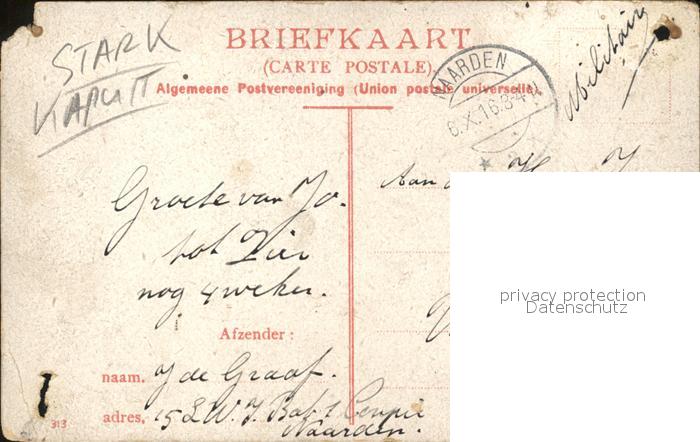 STARK
KAPUTT
BRIEFKAART
(CARTE POSTALE).
Algemeene Postvereeniging (Union postale universelle).
NAARDEN
6.X.16.3-4
Militair
Groete van Jo.
tot Zier
nog 4 weken.
Aan d
Afzender:
naam. J de Graaf.
adres, 15 L.W.I. Bat
Naarden.
313
privacy protection
Datenschutz